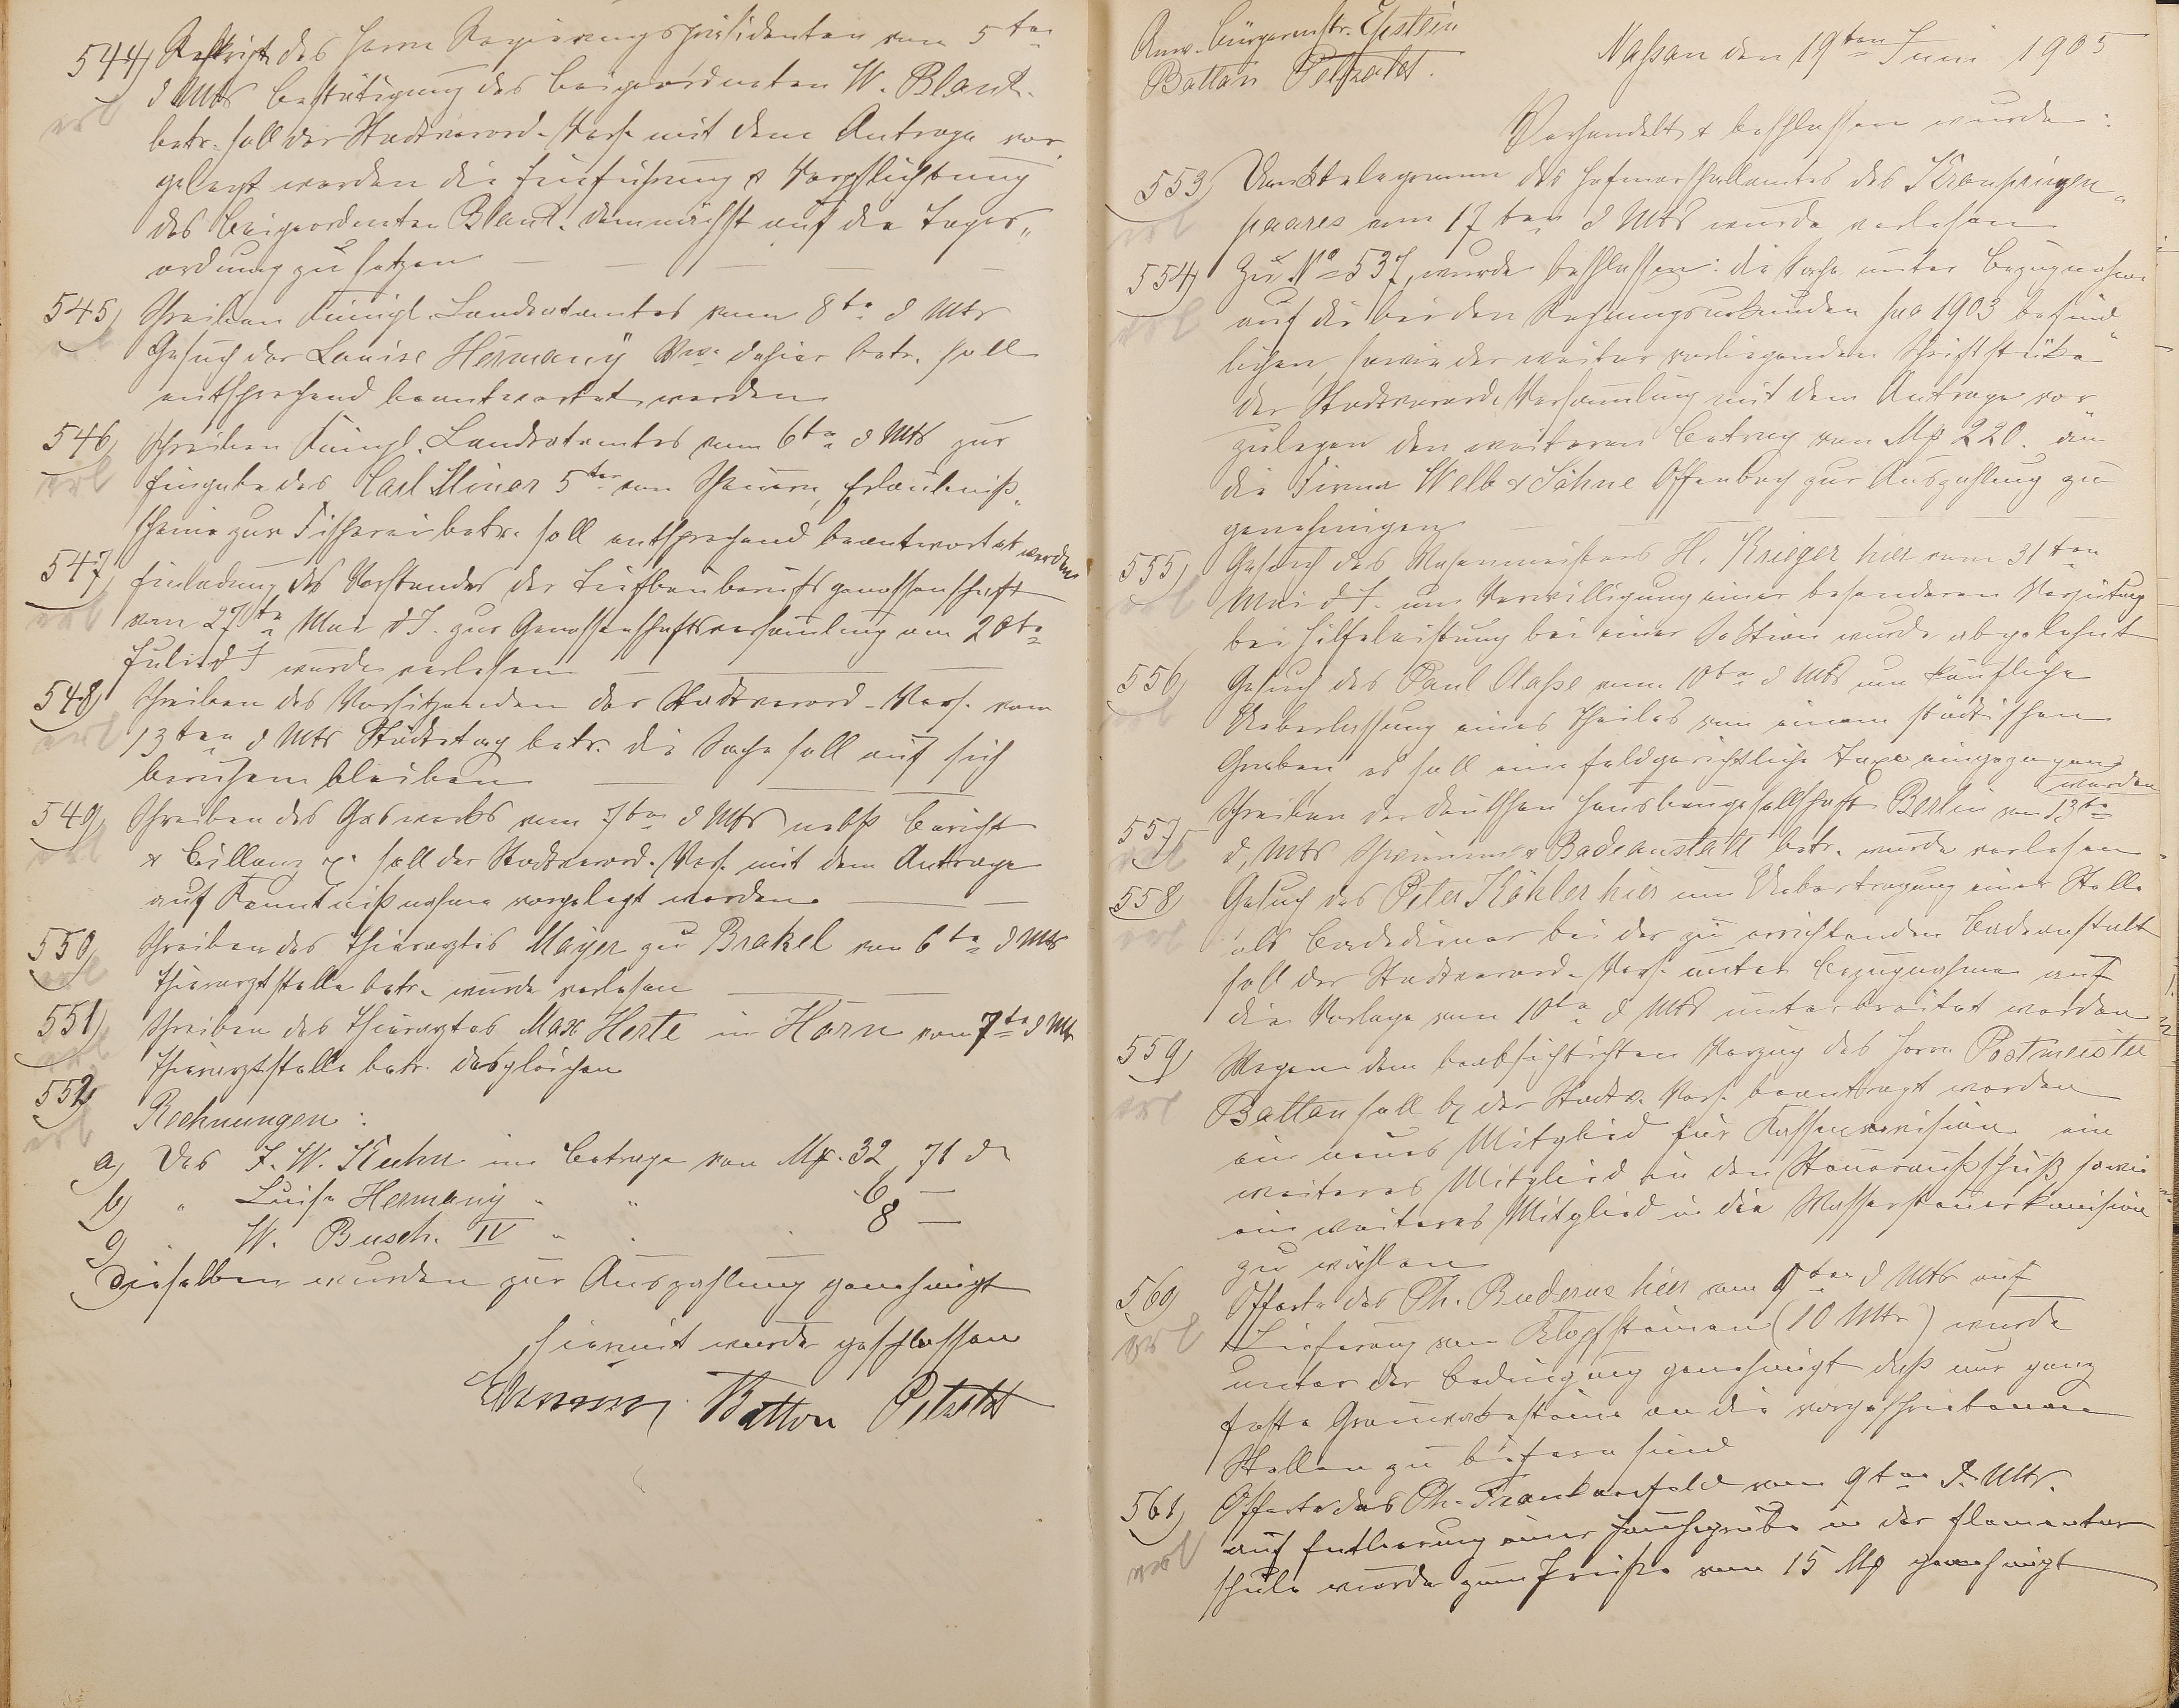 544) Reskript des Herrn Regierungspräsidenten vom 5ten
erl
d Mts Bestätigung des Beigeordneten W. Blank.
betr. soll der Stadtverord-Vers. mit dem Antrage vor,
gelegt werden die Einführung & Verpflichtung
des Beigeordneten Blank. demnächst auf die Tages„
ordnung zu setzen
545) Schreiben Königl. Landratamtes vom 8ten d Mts
erl
Gesuch der Louise Hermany Wwe. dahier betr. soll
entsprechend beantwortet werden
546) Schreiben Königl. Landratamtes vom 6ten d Mts zur
erl
Eingabe des Carl Minor 5ter von Scheuern, Erlaubniß„
scheine zur Fischerei betr. soll entsprechend beantwortet werden
547) Einladung des Vorstandes der Tiefbauberufsgenossenschaft
erl
vom 27ten Mai d J. zur Genossenschaftsversammlung am 20ten
Juli d J wurde verlesen
548) Schreiben des Vorsitzenden der Stadtverord-Vers. vom
erl
13ten d Mts Städtetag betr. die Sache soll auf sich
beruhen bleiben
549) Schreiben des Gaswerks vom 7ten d Mts nebst Bericht
erl
& Billanz soll der Stadtverord.-Vers. mit dem Antrage
auf Kenntnißnahme vorgelegt werden.
550) Schreiben des Thierarztes Mayer zu Brakel von 6ten d Mts
erl
Thierarztstelle betr. wurde verlesen
551) Schreiben des Thierarztes Max Herte in Horn vom 7ten d Mts
erl
Thierarztstelle betr. desgleichen
552) Rechnungen:
erl
a) Des J. W. Kuhn im Betrage von Mk. 32,71 d
b) " Luise Hermany " " 6 —
c) " W. Busch. IV " " 8 —
Dieselben wurden zur Auszahlung genehmigt
Hiermit wurde geschlossen
Batton Petzoldt
Anw. Bürgermstr. Epstein
Batton Petzoldt.
Naßau den 19ten Juni 1905
Verhandelt & beschlossen wurde:
553) Danktelegramm des Hofmarschallamtes des Kronprinzen„
erl
paares vom 17ten d Mts wurde verlesen
554) Zu No 537, wurde beschlossen: die Sache unter Bezugnahme
erl
auf die bei den Rechnungsurkunden pro 1903 befind„
lichen, sowie der weiter vorliegenden Schriftstücke
der Stadtverord. Versammlung mit dem Antrage vor„
zulegen den weiteren Betrag von Mk 220. an
die Firma Welb & Söhne Offenbach zur Auszahlung zu
genehmigen
555) Gesuch des Wasenmeisters H. Krieger hier vom 31ten
erl
Mai d J. um Verwilligung einer besonderen Vergütung
bei Hilfeleistung bei einer Sektion wurde abgelehnt
556) Gesuch des Paul vom 10ten d Mts um käufliche
erl
Ueberlassung eines Theiles von einem städtischen
Graben es soll eine feldgerichtliche Taxe eingezogen
werden
557) Schreiben der deutschen Hausbaugesellschaft Berlin vom 13ten
erl
d, Mts Schwimm & Badeanstalt betr. wurde verlesen
558) Gesuch des Peter Köhler hier um Uebertragung einer Stelle
erl
als Badediener bei der zu errichtenden Badeanstalt
soll der Stadtverord-Vers. unter Bezugnahme auf
die Vorlage vom 10ten d Mts unterbreitet werden
559) Wegen dem beabsichtichten Verzug des Herrn Postmeister
erl
Batton soll bei der Stadtv. Vers. beantragt werden
ein neues Mitglied für Kassenrevision ein
weiteres Mitglied in den Steuerausschuß sowie
ein weiteres Mitglied in die Wassersteuerkomission
zu wählen
560) Offerte des Ph. Buderus hier vom 9ten d Mts auf
erl
Lieferung von Klopfsteinen (10 Mtr) wurde
unter der Bedingung genehmigt daß nur ganz
feste Grauwackesteine an die vorgeschriebenen
Stellen zu liefern sind
561) Offerte des Ph. Frankenfeld vom 9ten d. Mts.
erl
auf Entleerung einer Jauchegrube in der Elementar
schule wurde zum Preise von 15 Mk genehmigt